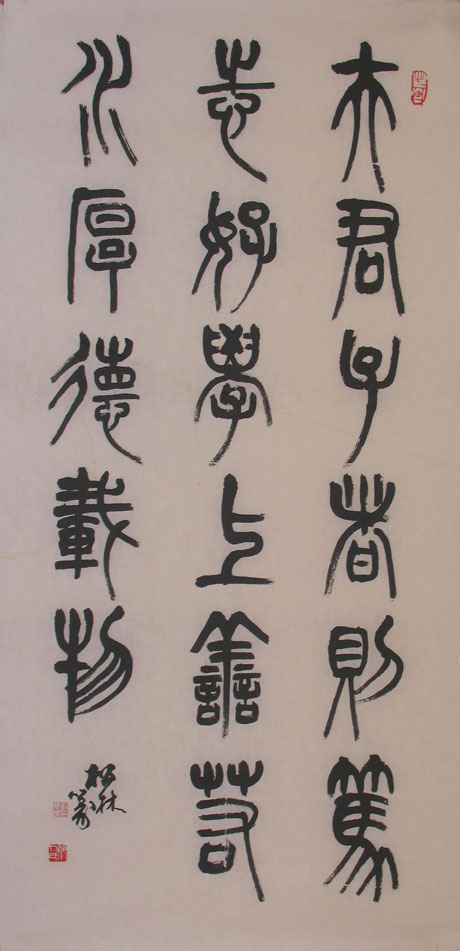 大君子者則篤
志好學上善若
水厚德載物
松林
篆